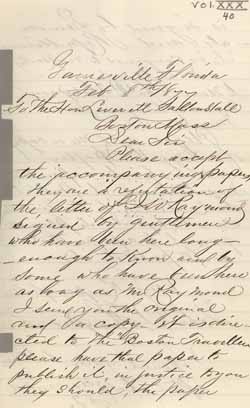 VOL. XXX
40
Gainesville Florida
Feb 8th
To The Hon Leverett Saltonstall
Boston Mass
Dear Sir
Please accept
the accompanying papers
they are a refutation of
the letter of Raymond
signed by gentlemen
who have been here long
enough to know and by
some who have been here
as long as Mr Raymond
I send you the original
and a copy. It is dire
cted to the Boston Traveller
please have that paper to
publish it in justice to you
they should, the paper